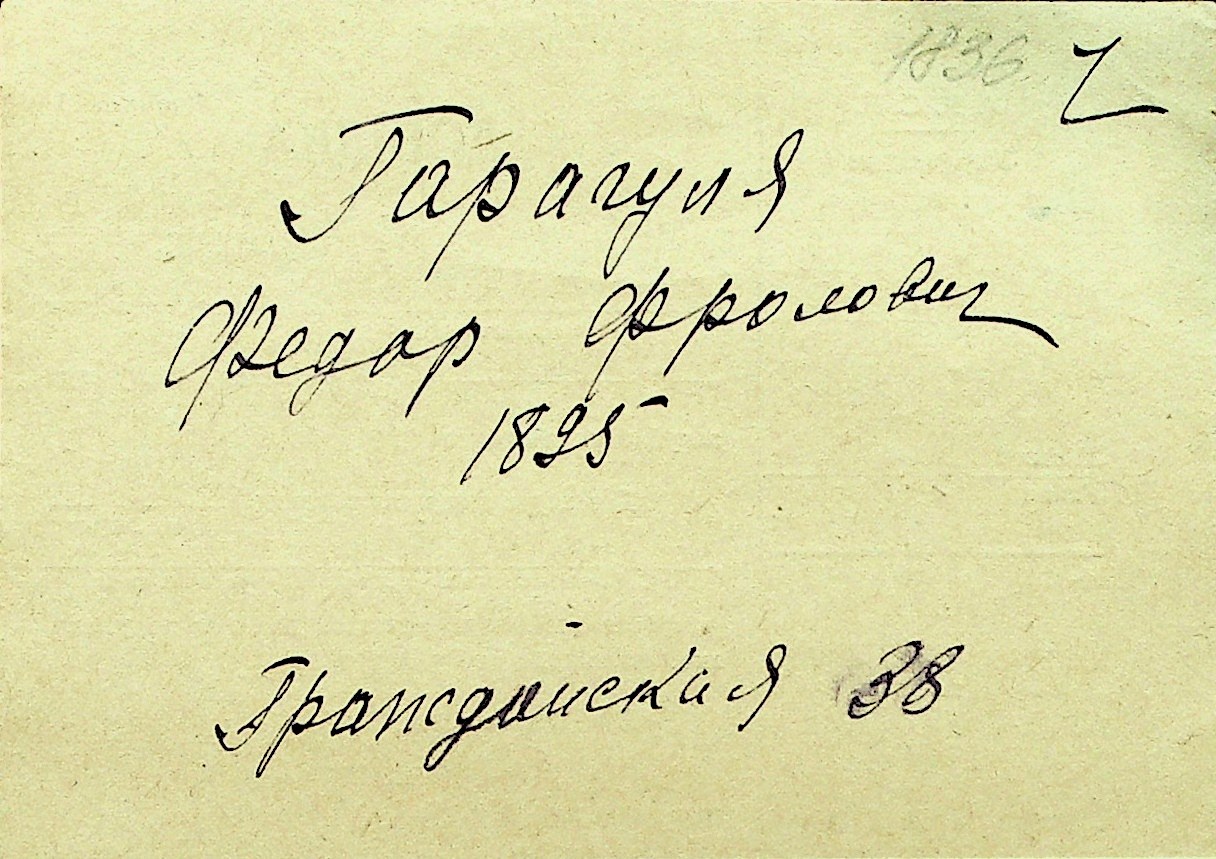 1836 ч
Гарагуля
Федор Фролович
1895
Гражданская 38